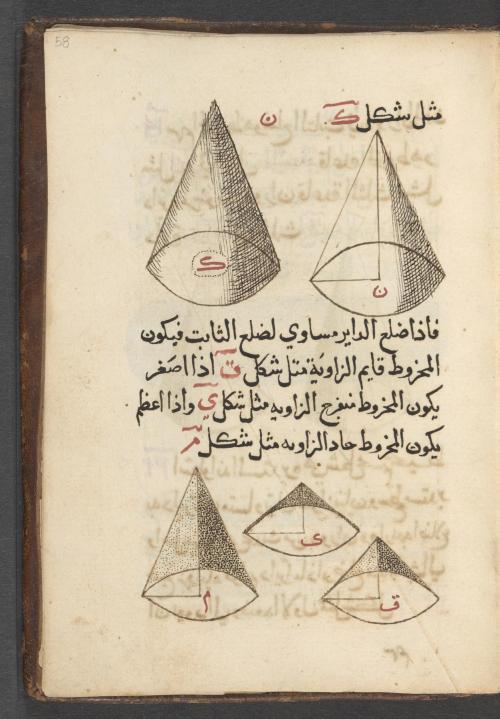 58
مثل شكل ك ن
ك
ن
فأذا ضلع الداير مساوي لضلع الثابت فيكون
المخروط قايم الزاوية مثل شكل ق اذا اصغر
يكون المخروط منفرج الزاويه مثل شكل ي واذا اعظم
يكون المخروط حاد الزاويه مثل شكل م
ى
م
ق